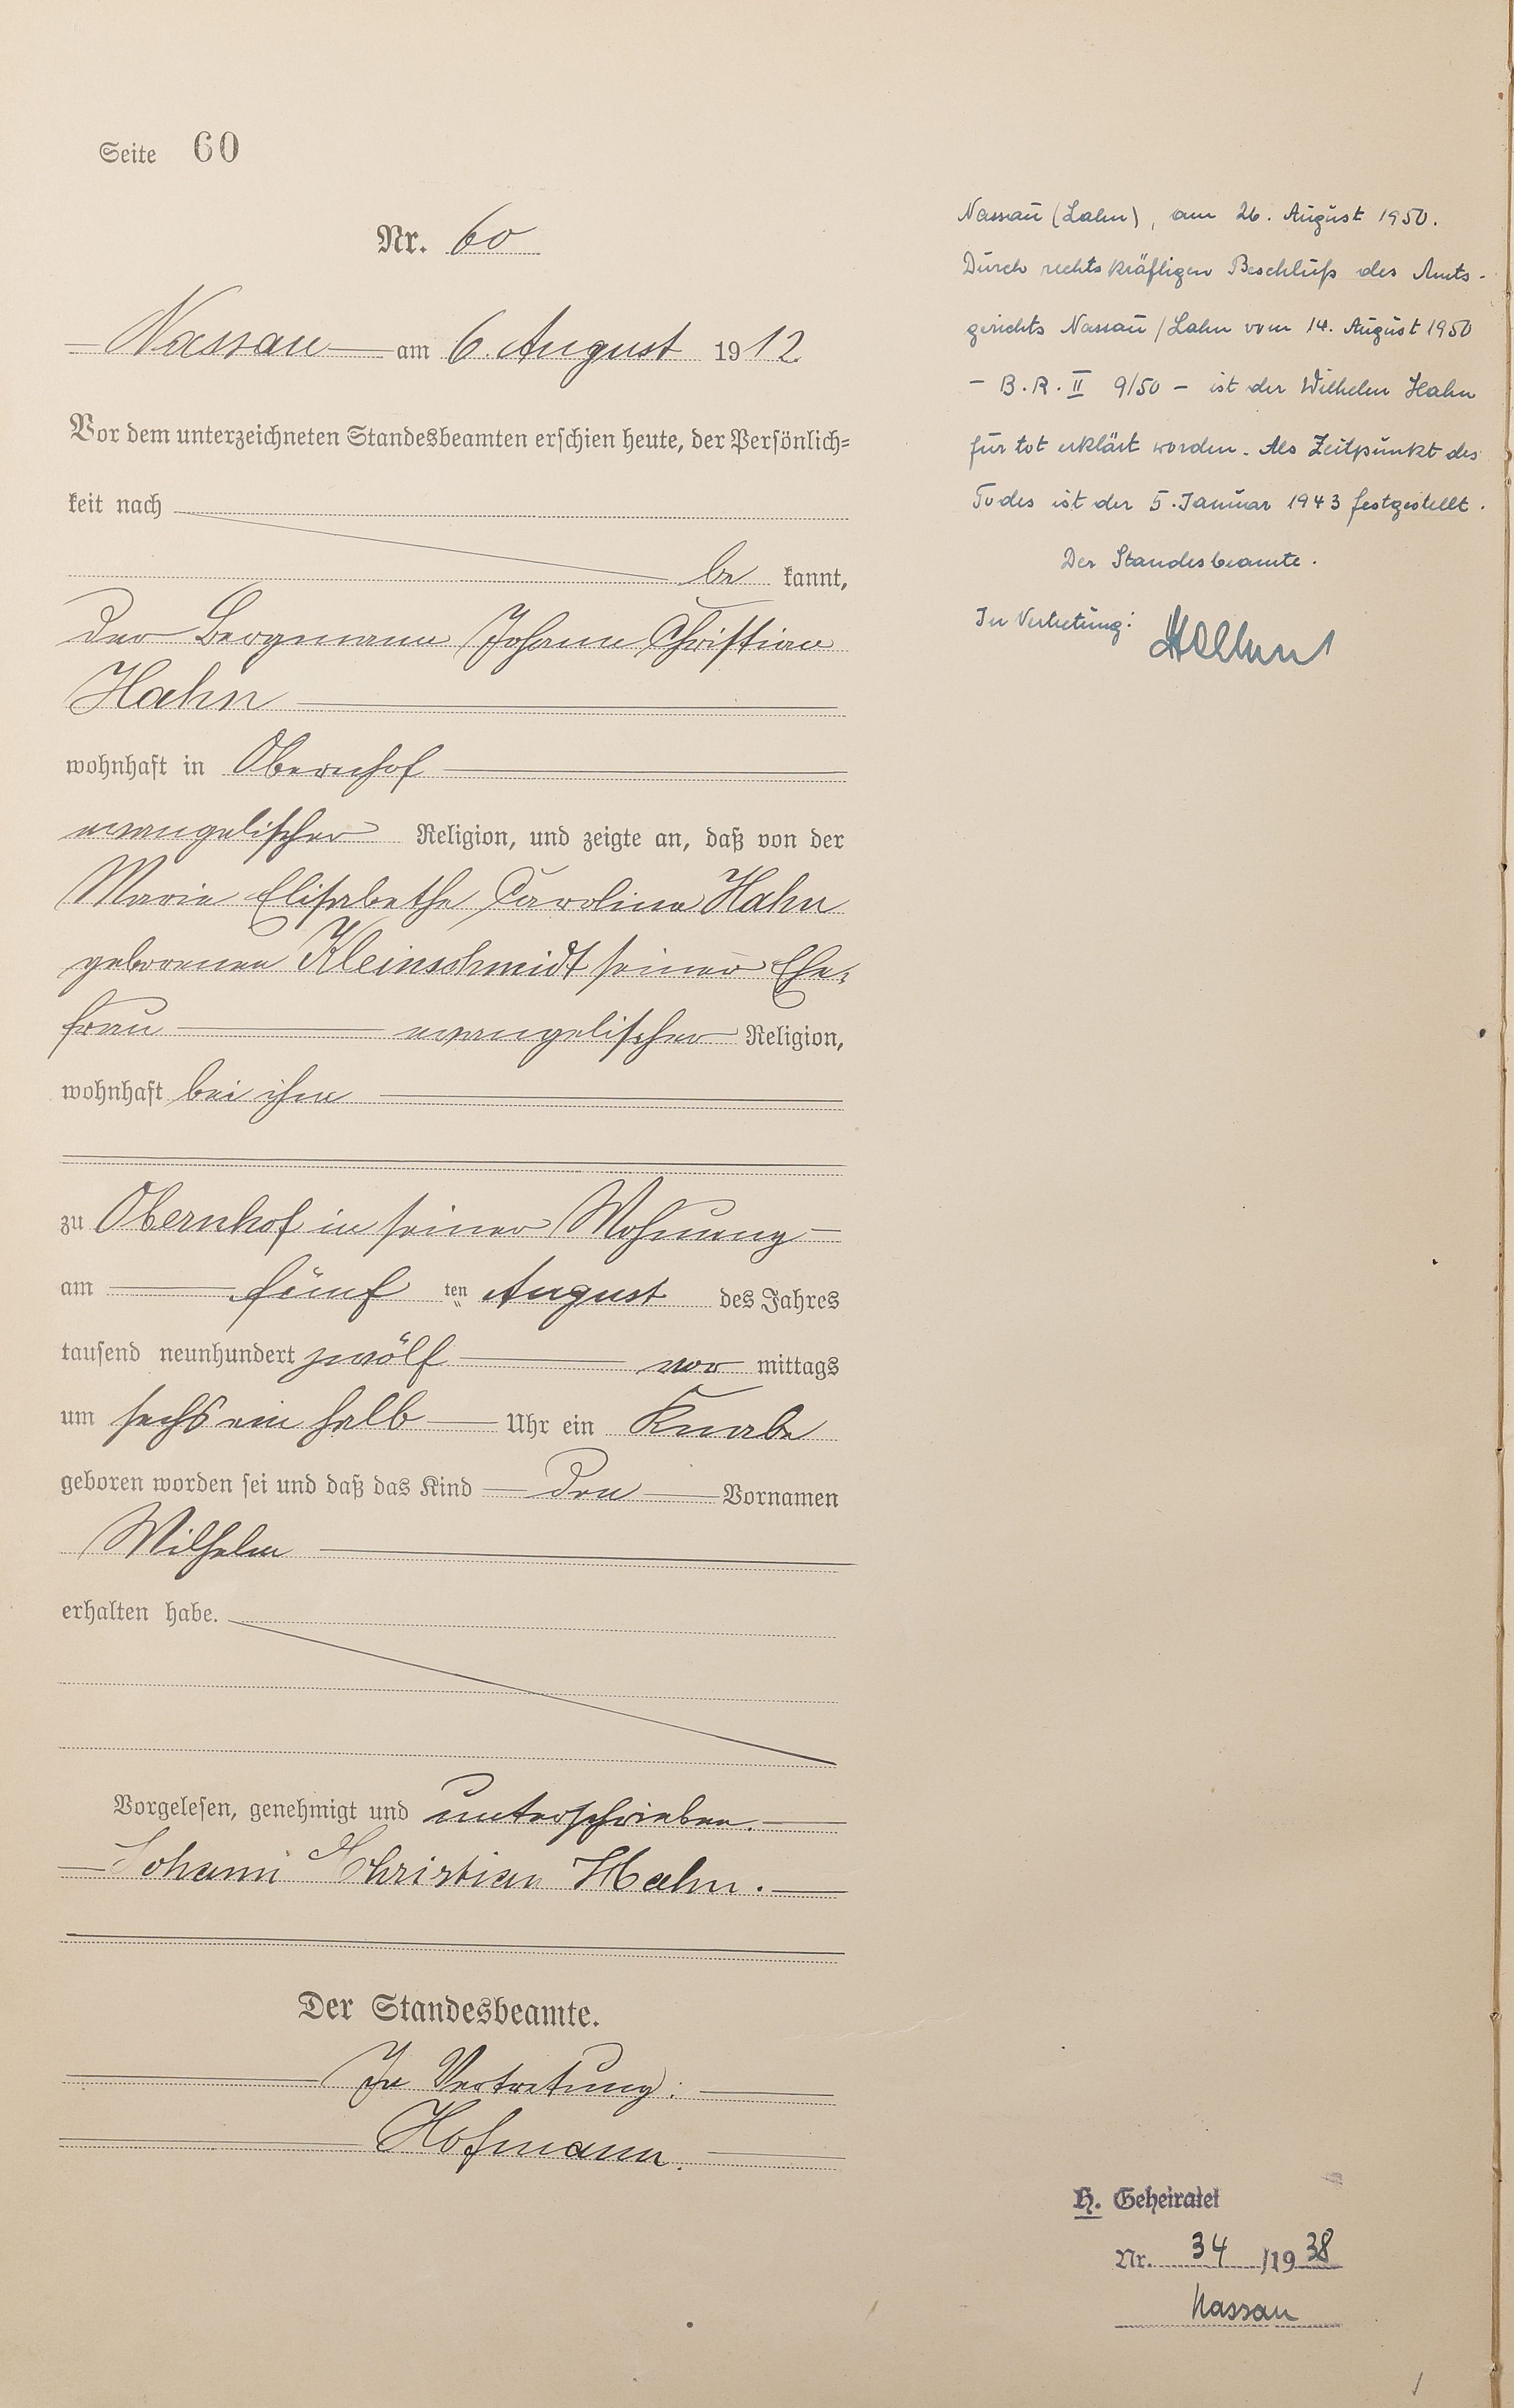 Seite 60
Nr. 60
Nassau am 6. August 1912
Vor dem unterzeichneten Standesbeamten erschien heute, der Persönlich=
keit nach
be kannt,
der Bergmann Johann Christian
Hahn
wohnhaft in Obernhof
evangelischer Religion, und zeigte an, daß von der
Marie Elisabethe Caroline Hahn
geborenen Kleinschmidt seiner Ehe=
frau evangelischer Religion,
wohnhaft bei ihm
zu Obernhof in seiner Wohnung
am fünf ten August des Jahres
tausend neunhundert zwölf vor mittags
um sechs ein halb Uhr ein Knabe
geboren worden sei und daß das Kind den Vornamen
Wilhelm
erhalten habe.
Vorgelesen, genehmigt und unterschrieben.
Johann Christian Hahn.
Der Standesbeamte.
In Vertretung:
Hofmann.
Nassau (Lahn), am 26. August 1950.
Durch rechtskräftigen Beschluß des Amts-
gerichts Nassau/Lahn vom 14. August 1950
- B.R. II 9/50 - ist der Wilhelm Hahn
für tot erklärt worden. Als Zeitpunkt des
Todes ist der 5. Januar 1943 festgestellt.
Der Standesbeamte.
In Vertretung:
H. Geheiratet
Nr. 34 /1938
Nassau